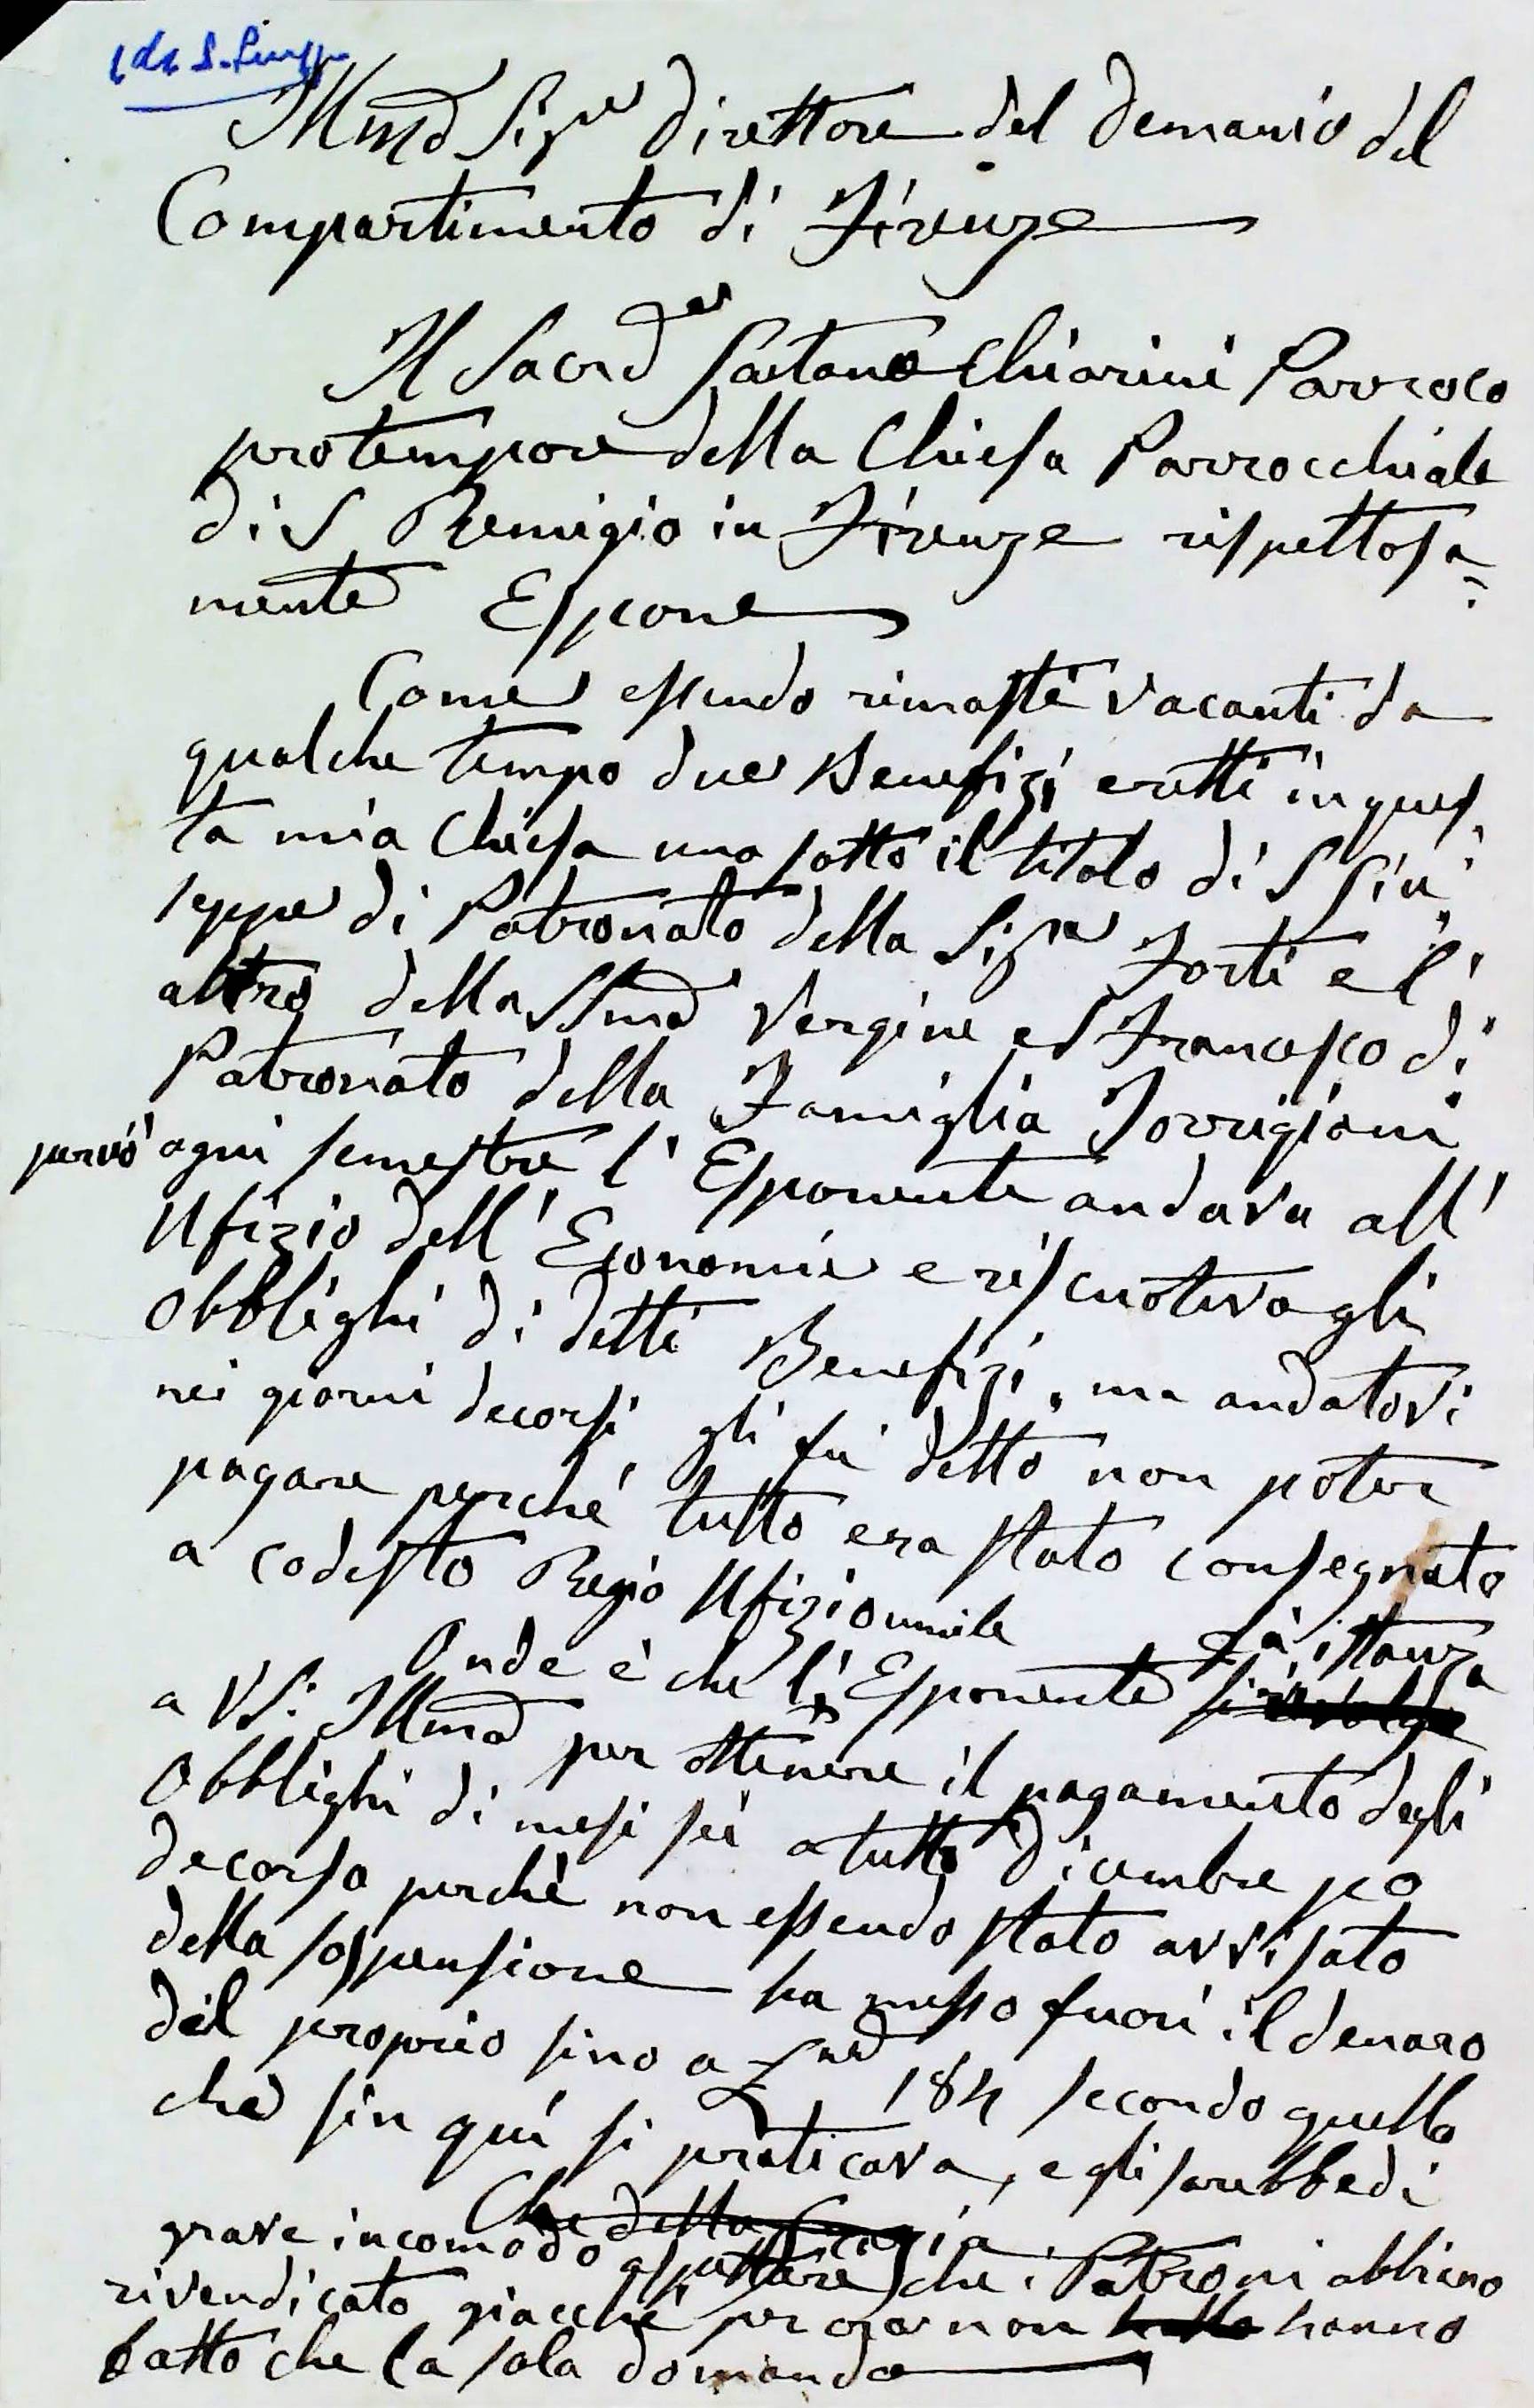 Illmo Sigre Direttore del Demanio del
Compartimento di Firenze
Il Sacerde Gaetano Chiarini Parroco
protempore della Chiesa Parrocchiale
di S Remigio in Firenze rispettosa-
mente Espone
Come essendo rimasti vacanti da
qualche tempo due Benefizi eretti in ques-
ta mia Chiesa uno sotto il titolo di S Giu-
seppe di Patronato della Sigra Forti e l'
altro della SSma Vergine e S Francesco di
Patronato della Famiglia Torrigiani
perciò ogni semestre l'Esponente andava all'
Ufizio dell'Economie e riscuoteva gli
Obblighi di detti Benefizi, ma andatovi
nei giorni decorsi, gli fu detto non poter
pagare perché tutto era stato consegnato
a codesto Regio Ufizio umile
fà istanza
Onde è che l'Esponente si rivolge
a VS: Illma per ottenere il pagamento degli
Obblighi di mesi sei a tutto Dicembre po
decorso perchè non essendo stato avvisato
della sospensione ha messo fuori il denaro
del proprio sino a 184 secondo quello
che sin quì si praticava, e gli sarebbe di
Che della Grazia
grave incomodo aspettare che i Patroni abbiano
rivendicato giacché per ora non hanno
fatto che la sola domanda